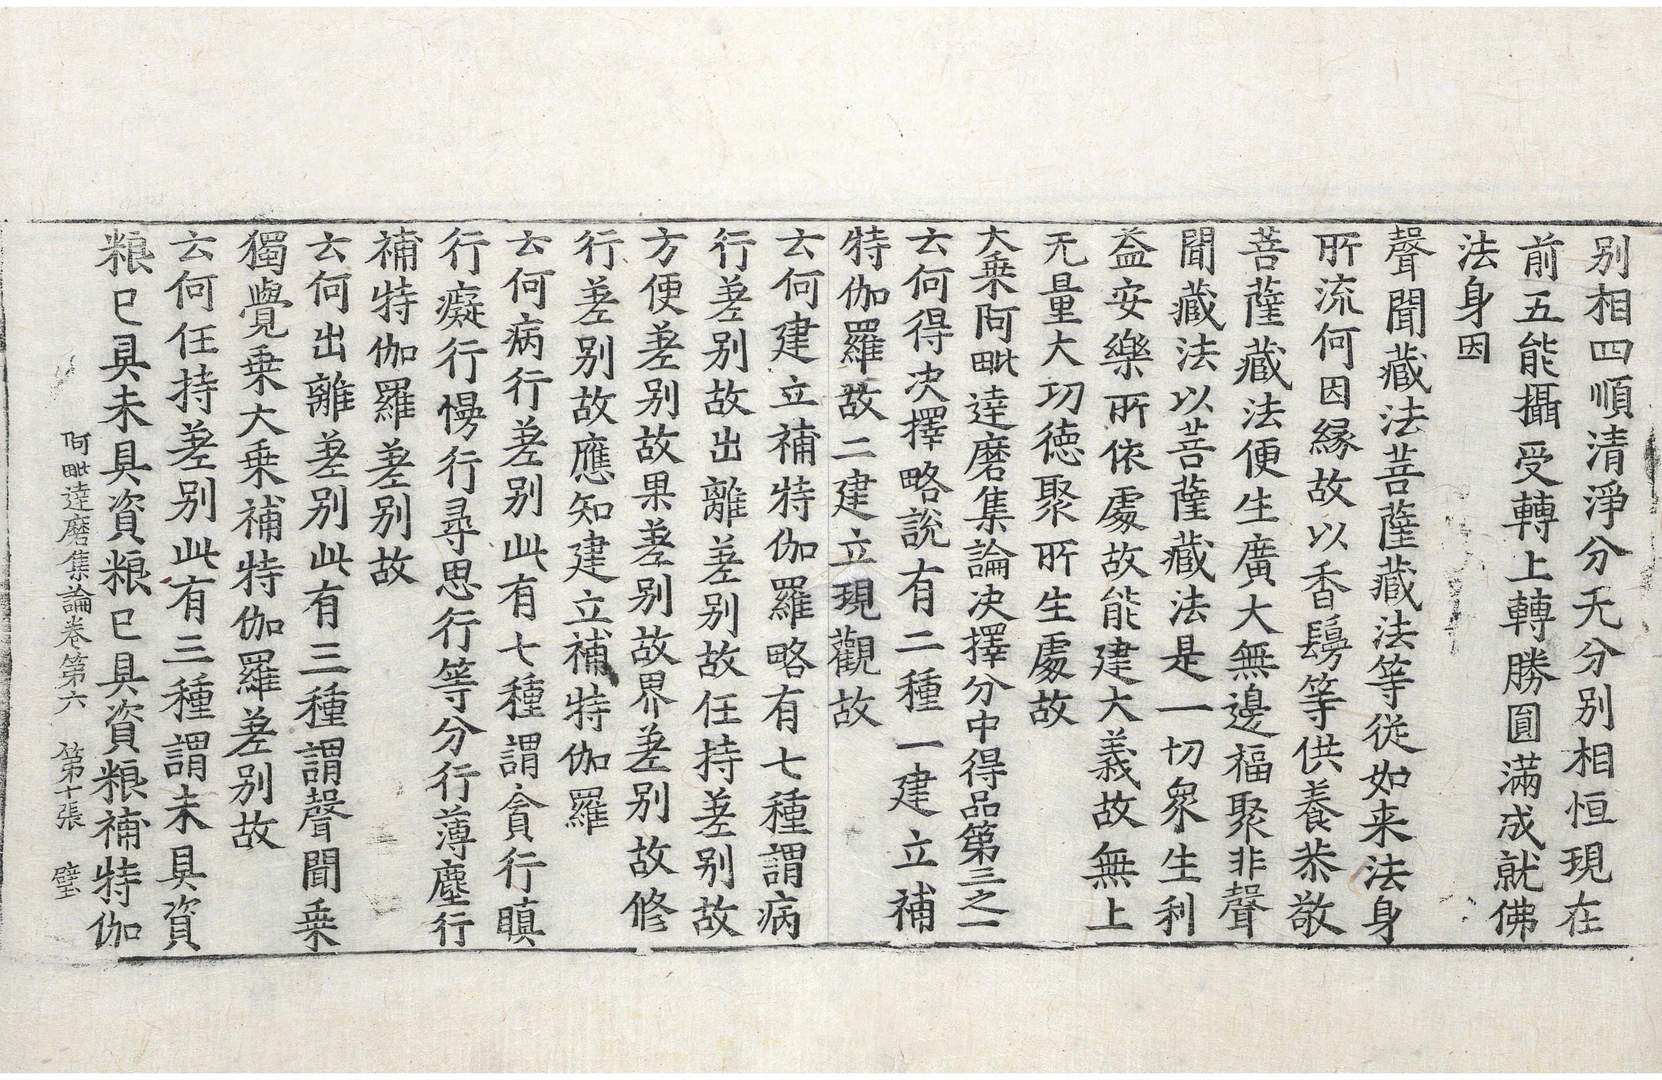 别相四順清淨分无分别相恒現在
前五能攝受轉上轉勝圓滿成就佛
法身因
聲聞藏法菩薩藏法等從如来法身
所流何因緣故以香鬘等供養恭敬
菩薩藏法便生廣大無邊福聚非聲
聞藏法以菩薩藏法是一切衆生利
益安樂所依處故能建大義故無上
无量大功德聚所生處故
大乗阿毗達磨集論决擇分中得品第三之一
云何得决擇略說有二種一建立補
特伽羅故二建立現觀故
云何建立補特伽羅略有七種謂病
行差别故出離差别故任持差别故
方便差别故果差别故界差别故修
行差别故應知建立補特伽羅
云何病行差别此有七種謂貪行瞋
行癡行慢行尋思行等分行薄塵行
補特伽羅差别故
云何出離差别此有三種謂聲聞乗
獨覺乗大乗補特伽羅差别故
云何任持差别此有三種謂未具資
粮已具未具資粮已具資粮補特伽
阿毗達磨集論卷第六 第十張 璧